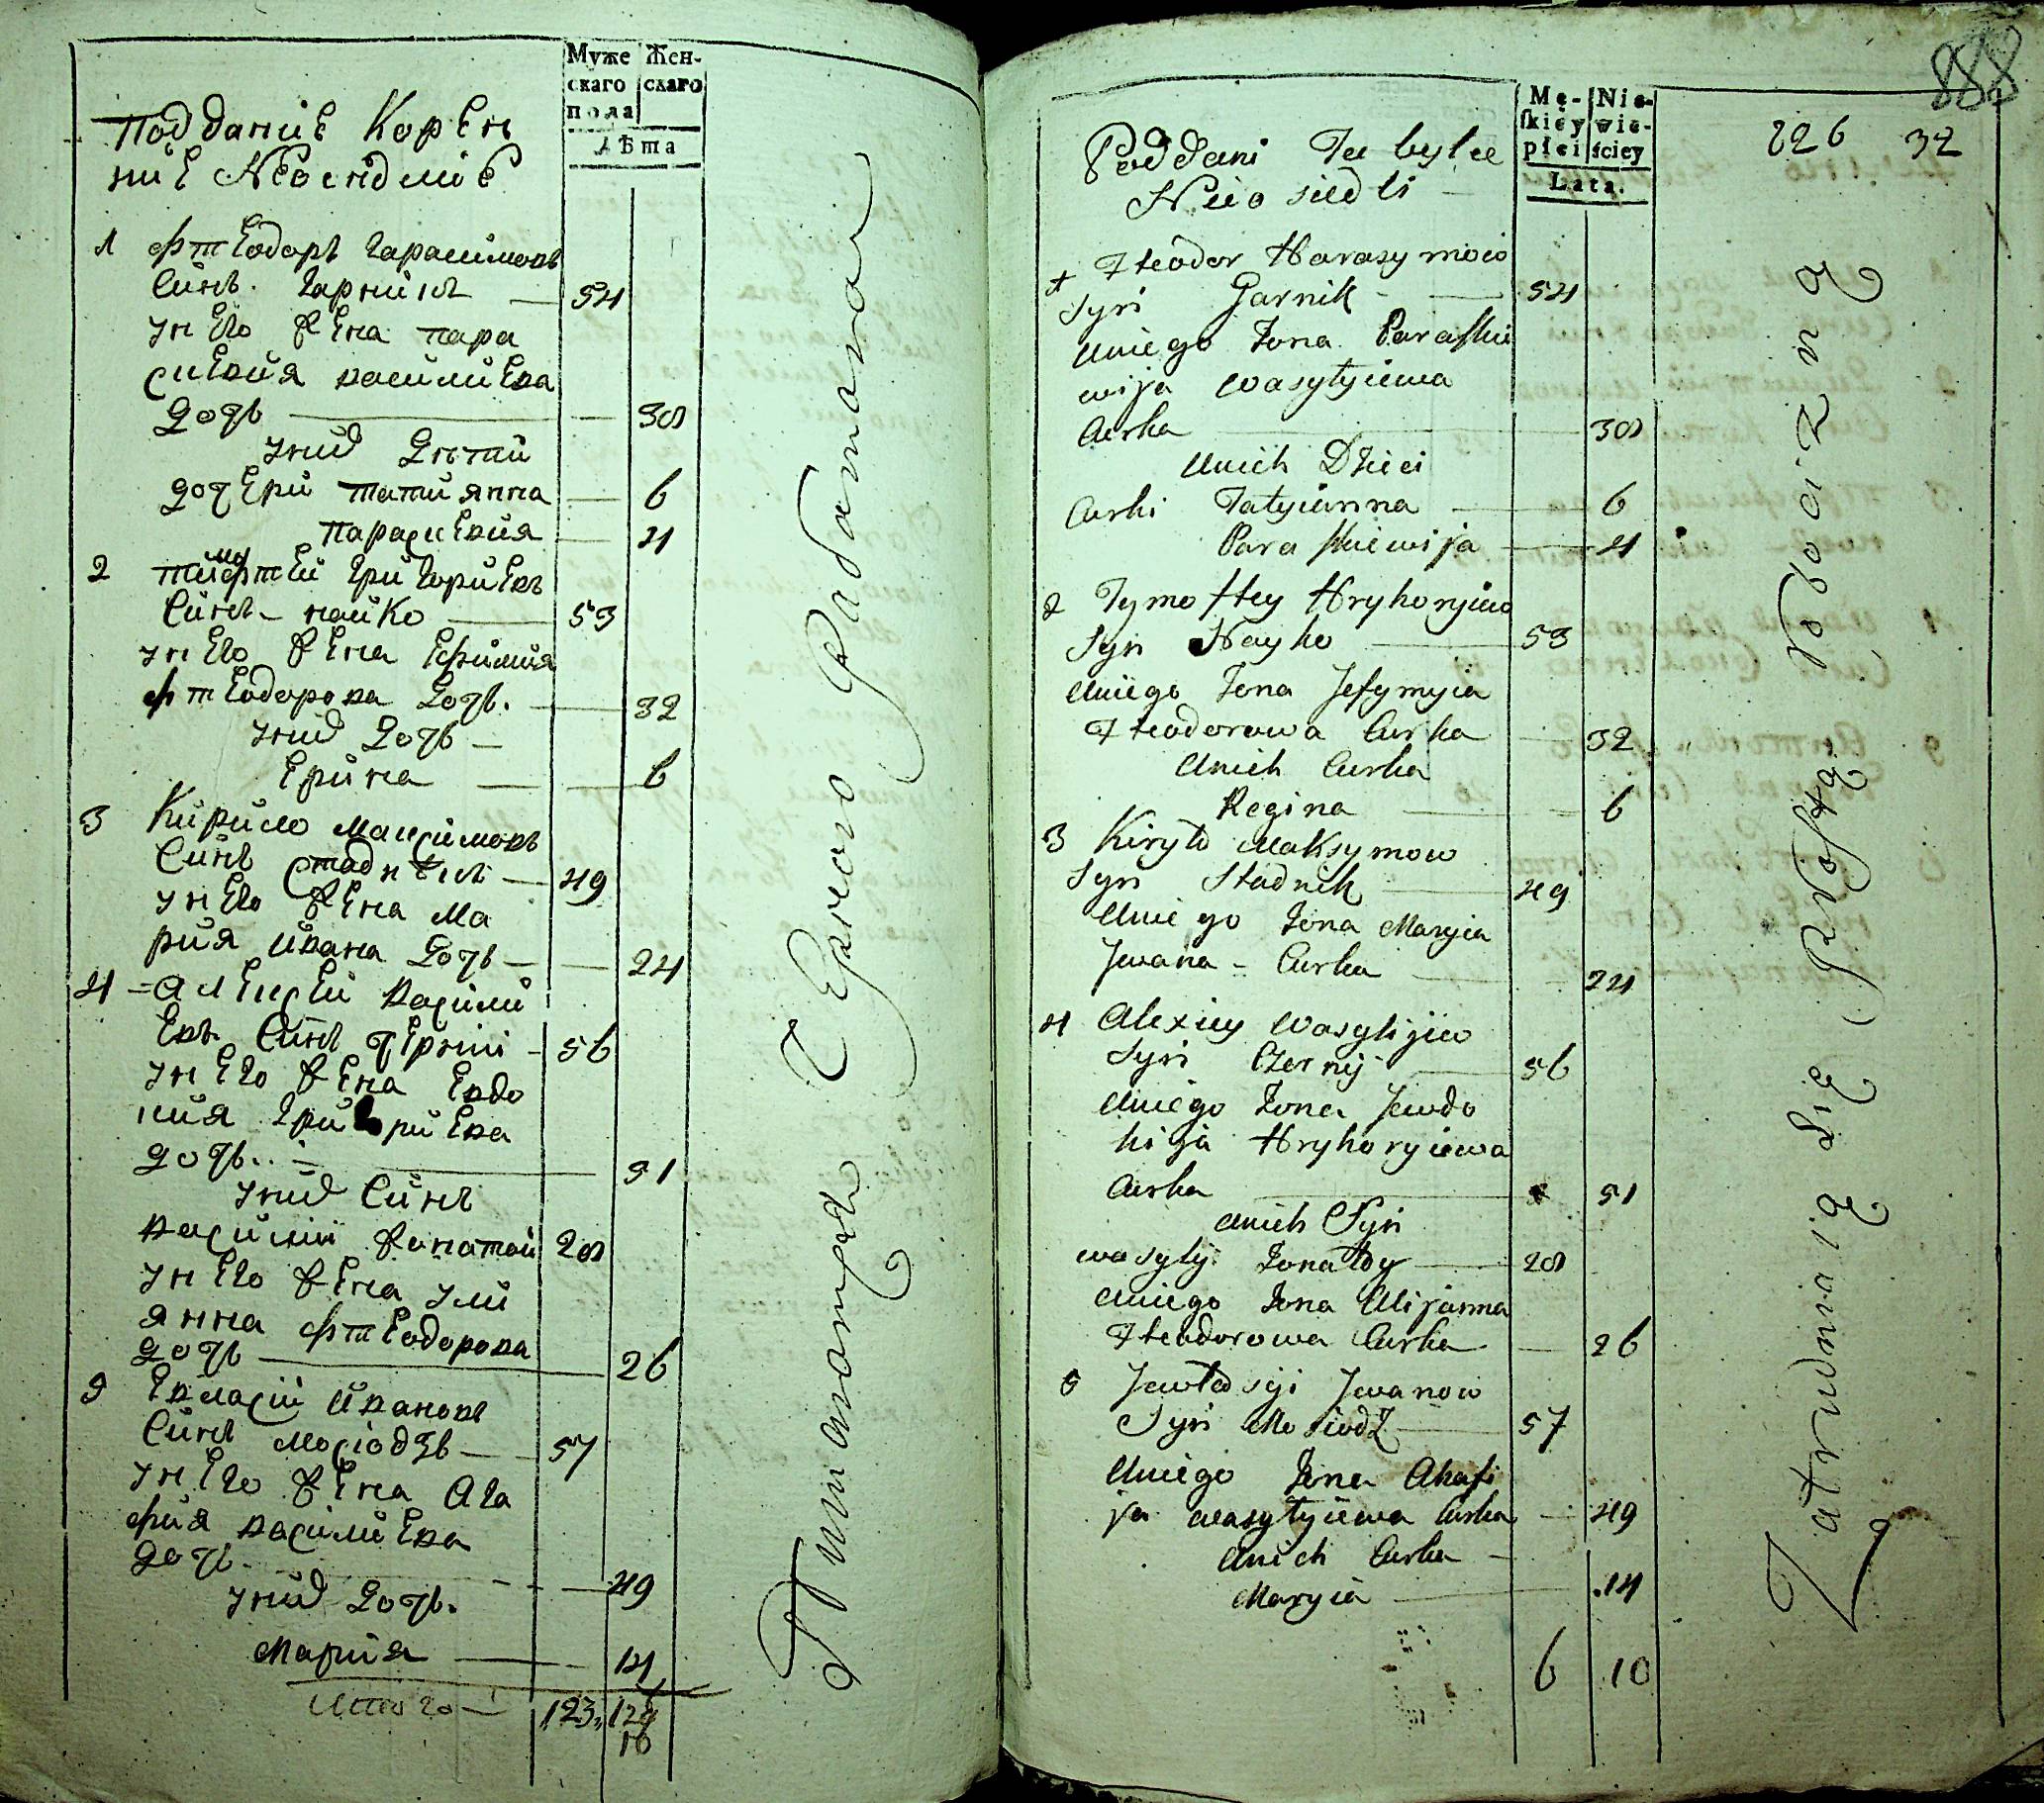 Муже
скаго
пола
Жен-
скаго
Лѣта
Подданіе Корен
ніе Неосѣдліе
1 Фтеодоръ Гарасимовъ
Синъ Гарникъ — 54
У него Жена Пара
скевия василиева
Дочь — 30
У нихъ Дети
Дочери Татиянна — 6
Параскевия — 4
2 Тимофтей Григориевъ
Синъ Найко — 53
У него Жена Ефимия
Фтеодорова Дочь. — 32
У нихъ Дочь —
Ерина — 6
3 Кирило Максимовъ
Синъ Стадникъ — 49
У него Жена Ма
рия Ивана Дочь — 24
4 Алексей Васили
евъ Синъ Черній — 56
У него Жена Евдо
кия Григориева
Дочь.. — 51
У нихъ Синъ
Василий Жонатой 28
У него Жена Ули
янна Фтеодорова
Дочь — 26
5 Евласий Ивановъ
Синъ Мосіодзъ — 57
У него Жена Ага
фия Василиева
Дочь — 49
У нихъ Дочь.
Мария — 14
Итого — 123
Mę-
skiey
płci
Nie-
wie-
ściey
Lata.
888
226 32
Poddani Tu byłce
Nieo siedli
Fteodor Harasymow
Syn Garnik — 54
Uniego Żona Paraskie
wija Wasylyiewa
Curka — 30
Unich Dzieci
Curki Tatyianna — 6
Paraskiewija — 4
2 Tymoftey Hryhoryiew
Syn Nayko — 53
Uniego Żona Jefymyia
Fteodorowa Curka 32
Unich Curka
Regina — 6
3 Kiryło Maksymow
Syn Stadnik — 49
Uniego Żona Maryia
Jwana — Curka — 24
4 Alexiey Wasylijiew
Syn Czernij — 56
Uniego Żona Jewdo
kija Hryhoryiewa
Curka — 51
Unich Syn
Wasyly Żonatoy — 28
Uniego Żona Ulijanna
Fteodorowa Curka — 26
5 Jewłasyi Jwanow
Syn Mosiodz — 57
Uniego Żona Ahafi
ja Wasylyiewa Curka — 49
Unich Curka —
Maryia — 14
6 10
Zatrudniaią Się Prostą Roboczizną